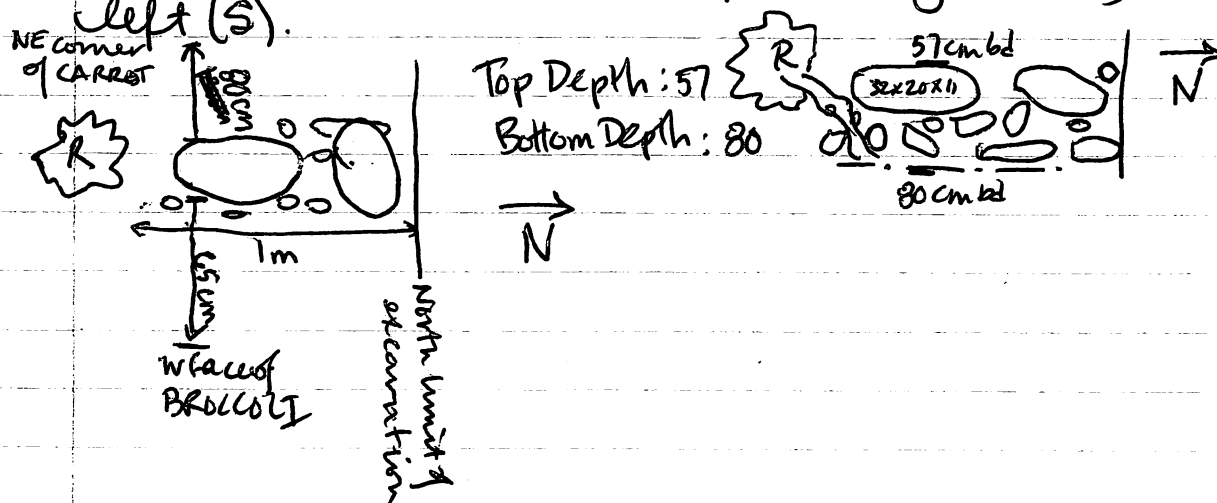 left (S).
NE corner
of CARROT
80cm
R
1m
65cm
W face of
BROCCOLI
North limit of
excavation
N
Top Depth: 57
Bottom Depth: 80
R
57cm bd
32x20x11
80cm bd
N